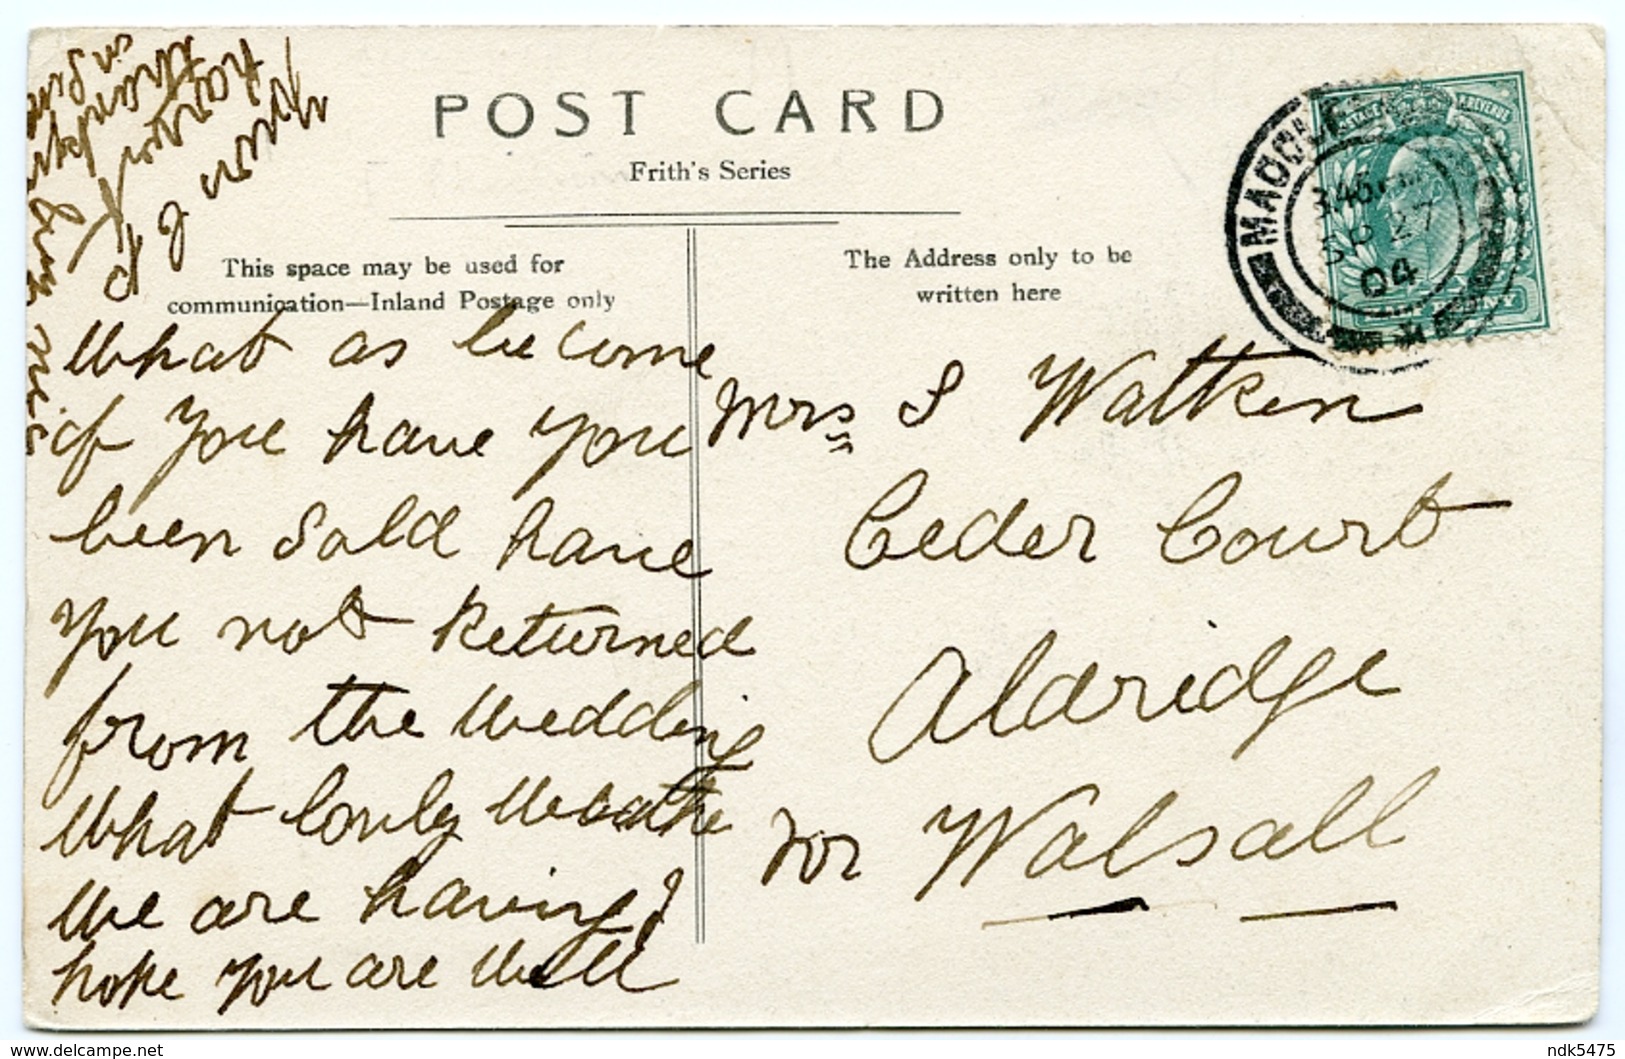 POST CARD
Frith's Series
This space may be used for
communication—Inland Postage only
The Address only to be
written here
3.45 PM
SP 27
04
What as become
of you have you
been sold have
you not Returned
from the wedding
What lovely weathe
we are having I
hope you are well
Mrs S Watkin
Ceder Court
Aldridge
nor Walsall
ndk5475
www.delcampe.net